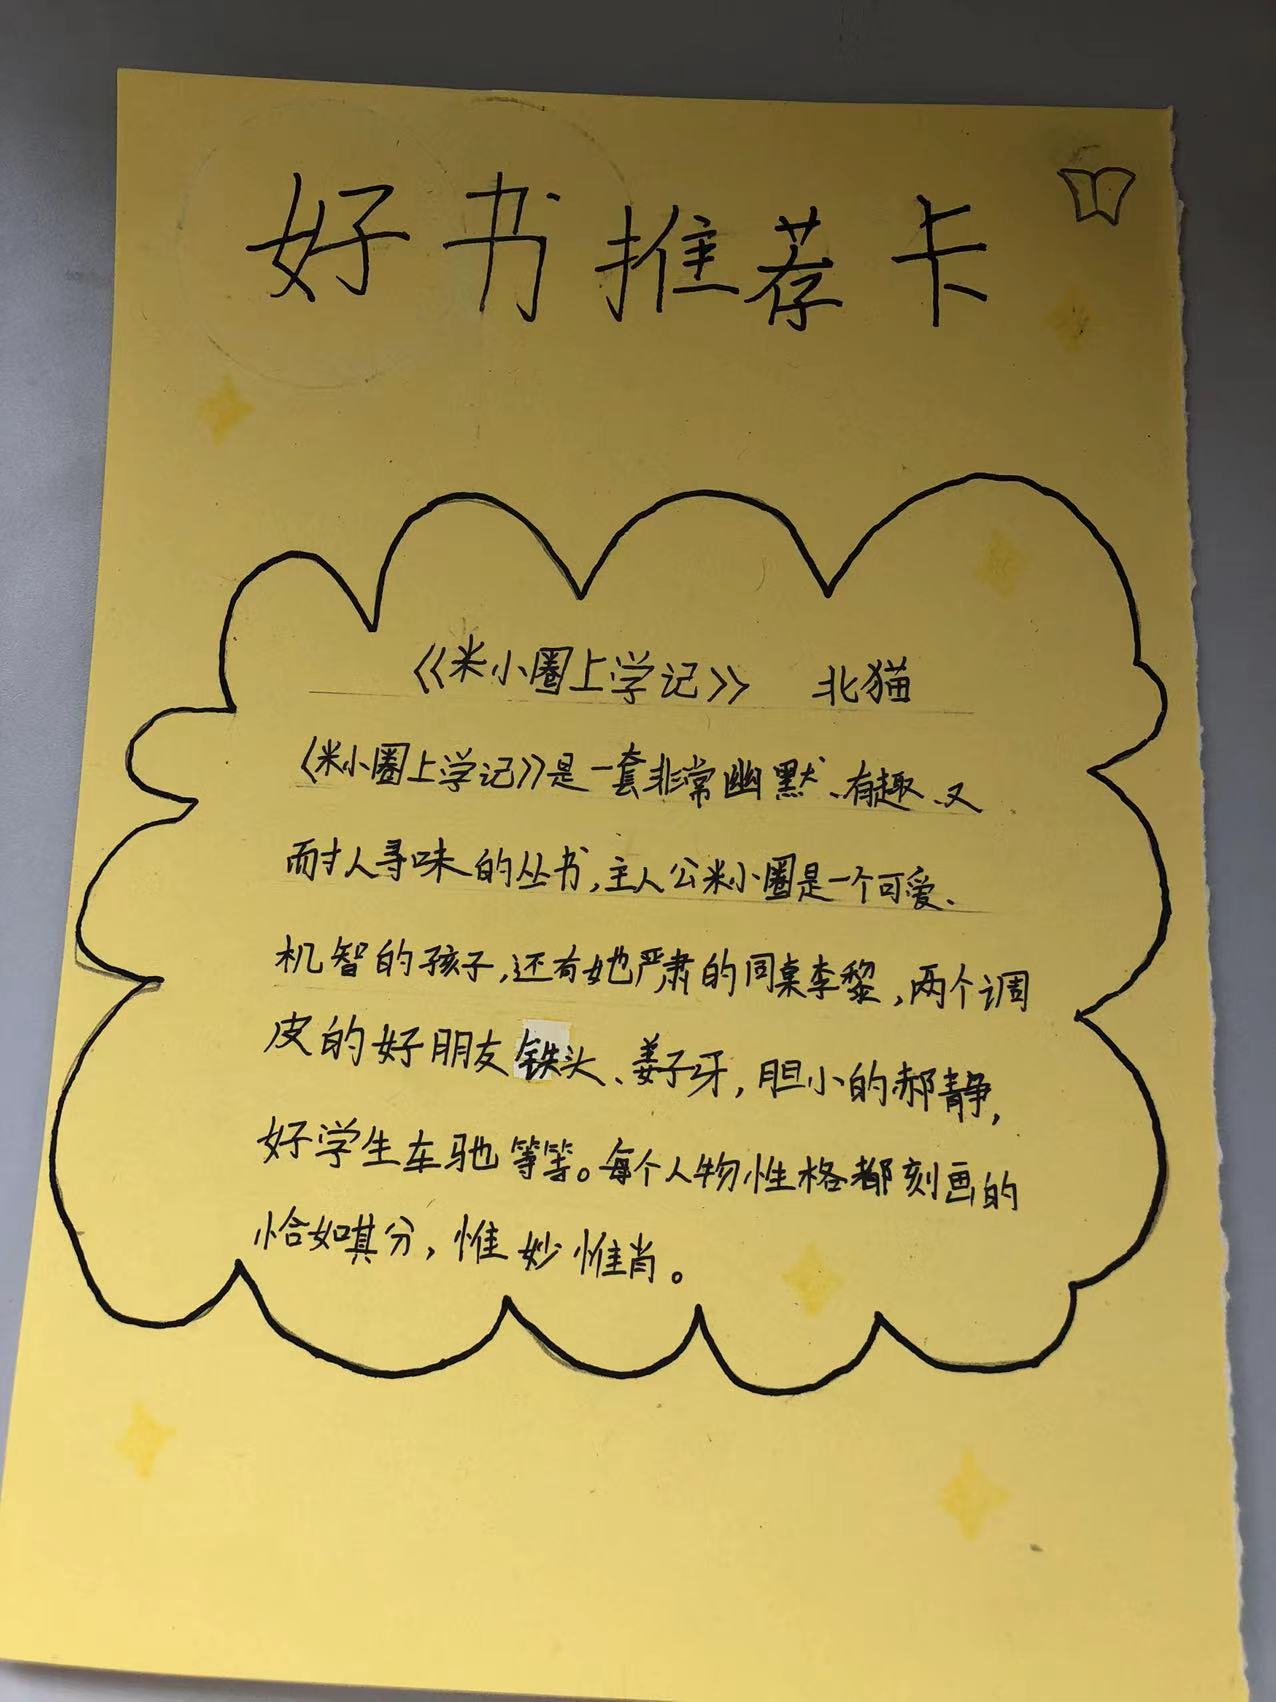 好书推荐卡
《米小圈上学记》 北猫
《米小圈上学记》是一套非常幽默、有趣、又
耐人寻味的丛书,主人公米小圈是一个可爱、
机智的孩子,还有她严肃的同桌李黎,两个调
皮的好朋友铁头、姜子牙,胆小的郝静,
好学生车驰等等。每个人物性格都刻画的
恰如其分,惟妙惟肖。